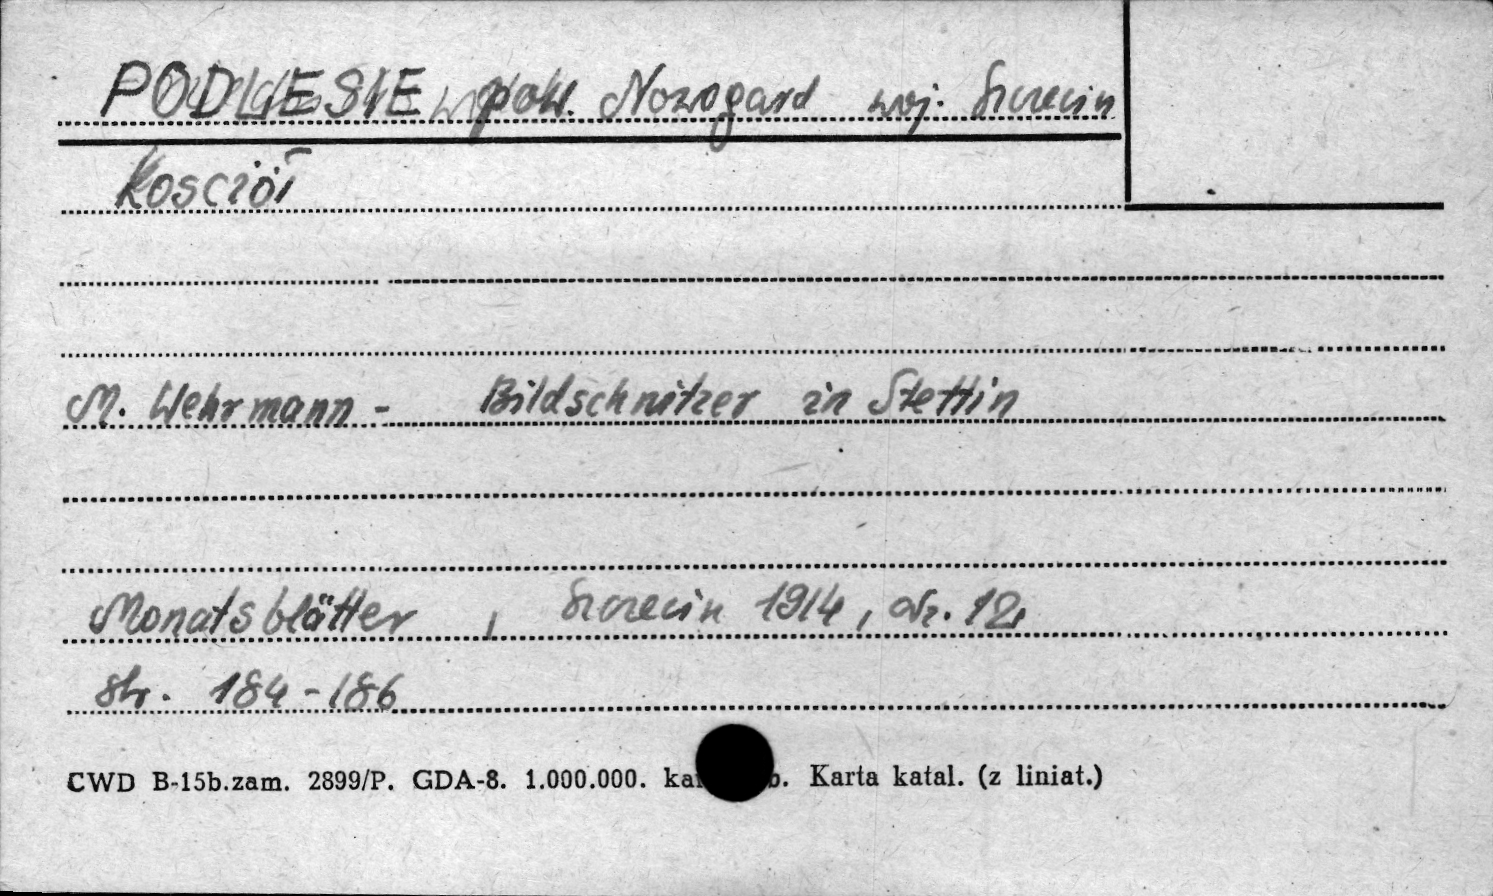 PODLESIE pow. Nowogard woj. Szczecin
Kościół
M. Wehrmann - Bildschnitzer in Stettin
Monatsblätter, Szczecin 1914, Nr. 12,
str. 184-186
CWD B-15b.zam. 2899/P. GDA-8. 1.000.000. Karta katal. (z liniat.)